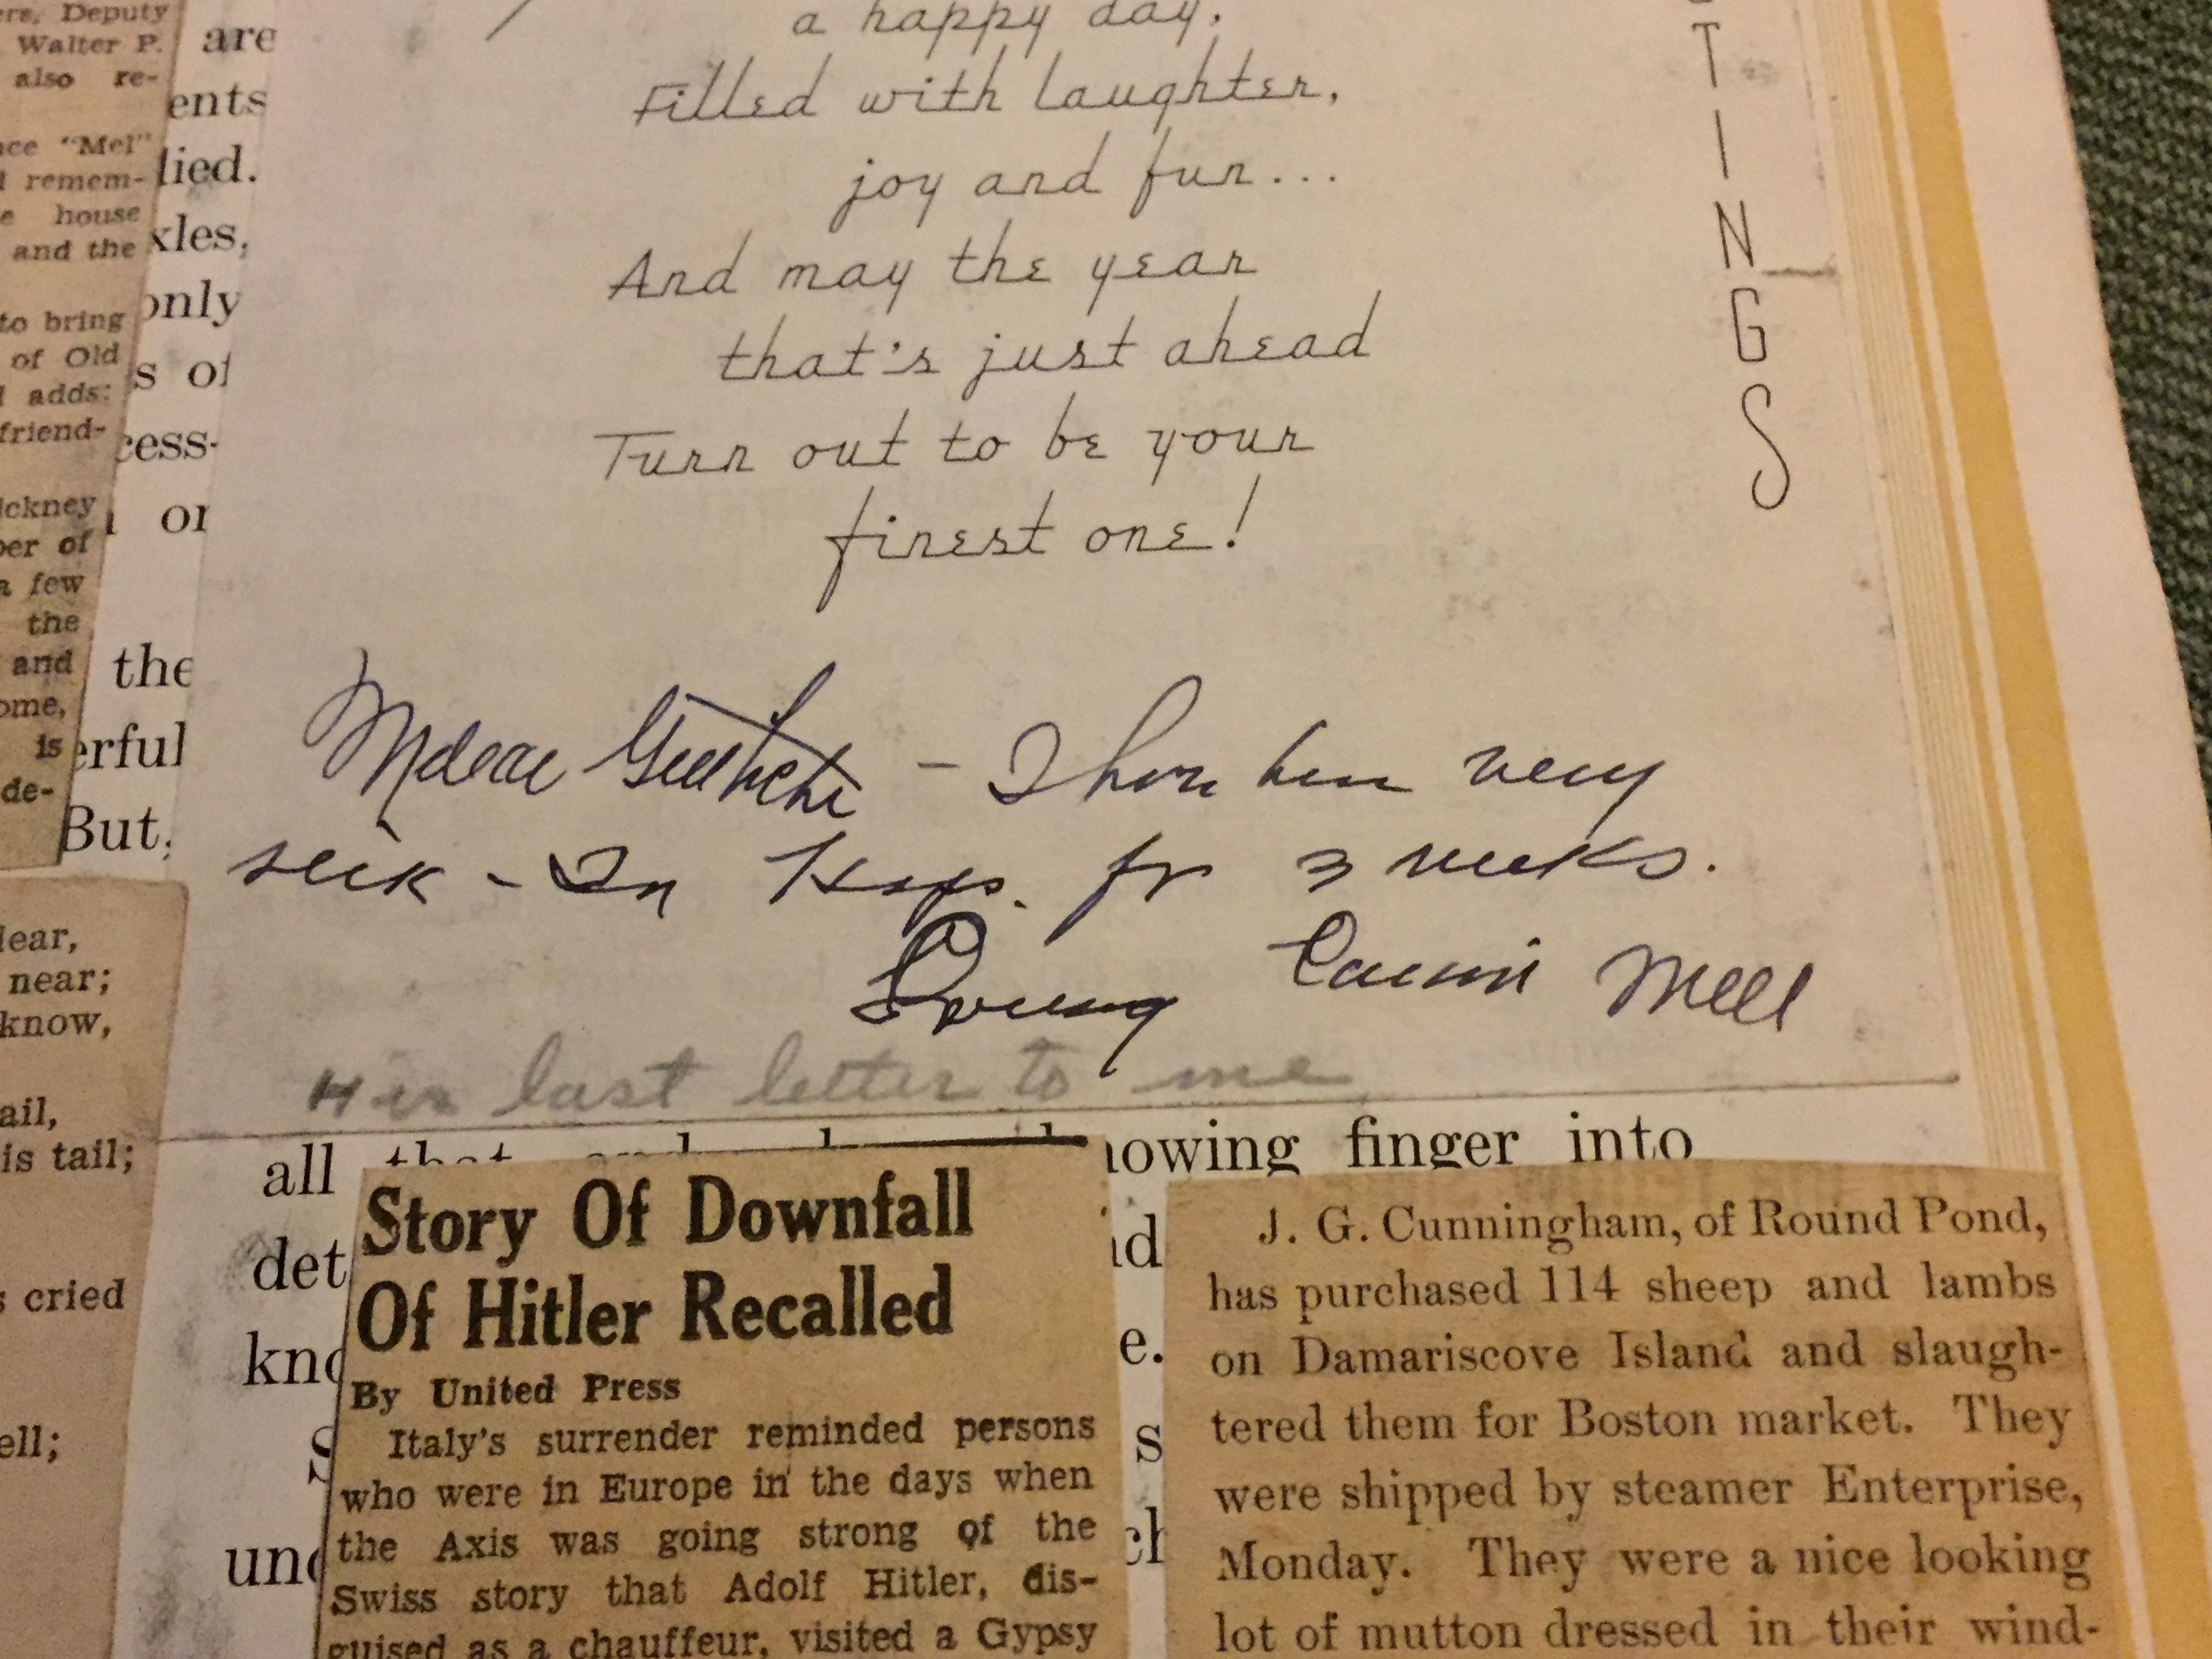 ers, Deputy
Walter P.
also re-
nce "Mel"
d remem-
e house
and the
to bring
of Old
d adds:
friend-
ickney
ber of
a few
the
and
ome,
is
de-
lear,
near;
know,
ail,
is tail;
s cried
ell;
are
ents
lied.
xles,
only
s of
cess-
or
the
erful
But,
a happy day,
Filled with laughter,
joy and fun...
And may the year
that's just ahead
Turn out to be your
finest one!
TINGS
– I have been very
sick – In Hosp. for 3 weeks.
Mell
His last letter to me
all that and howing finger into
det
kno
und
id
e.
s
ch
Story Of Downfall
Of Hitler Recalled
By United Press
Italy's surrender reminded persons
who were in Europe in the days when
the Axis was going strong of the
Swiss story that Adolf Hitler, dis-
guised as a chauffeur, visited a Gypsy
J. G. Cunningham, of Round Pond,
has purchased 114 sheep and lambs
on Damariscove Island and slaugh-
tered them for Boston market. They
were shipped by steamer Enterprise,
Monday. They were a nice looking
lot of mutton dressed in their wind-